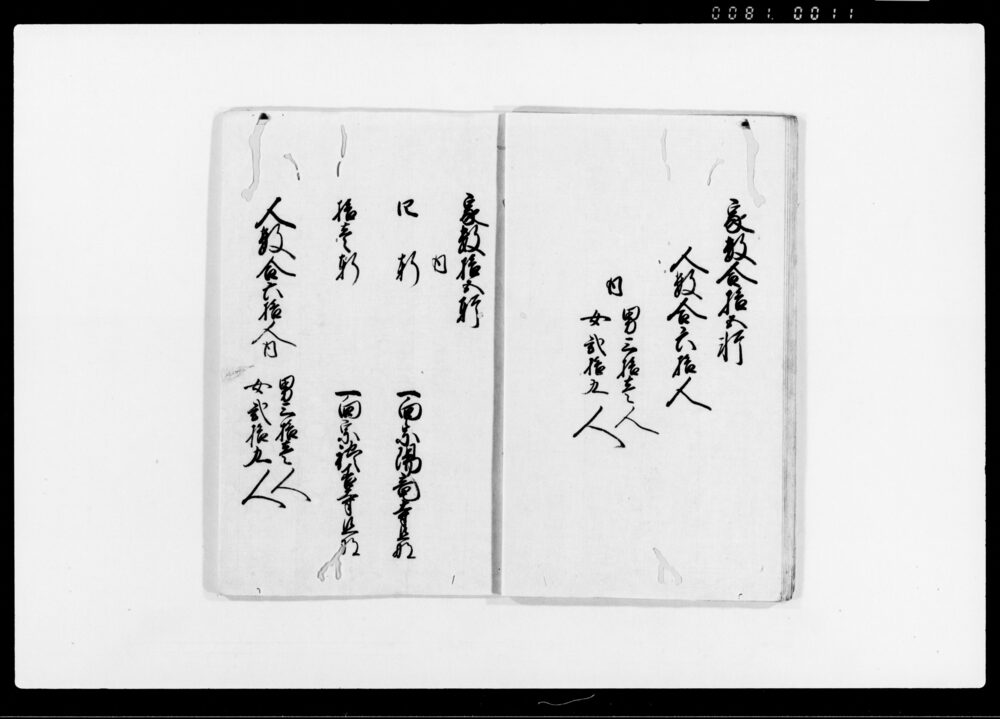 0081. 0011
家数合拾五軒
人数合六拾人
内
男三拾壱人
女弐拾九人
家数拾五軒
内
四軒
一向宗陽雲寺旦那
拾壱軒
一向宗 寺旦那
人数合六拾人内
男三拾壱人
女弐拾九人